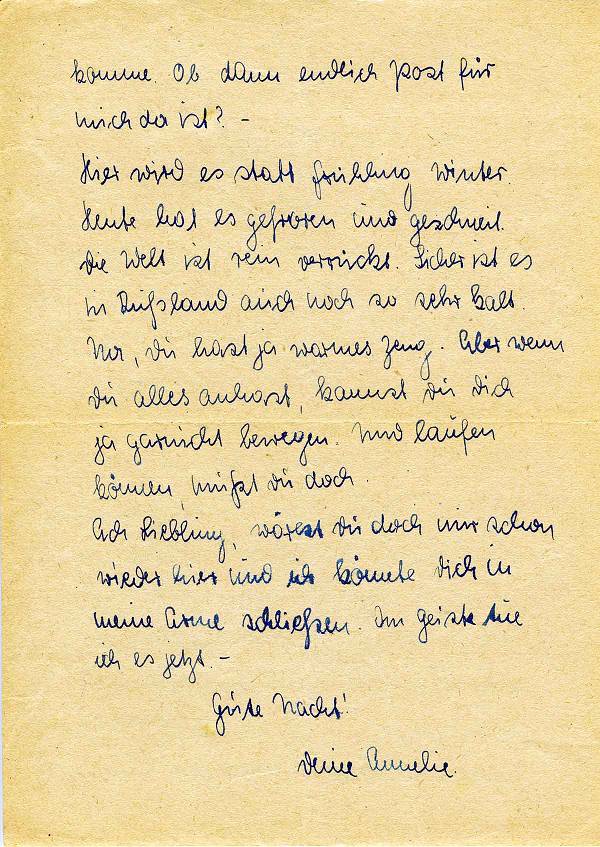 komme. Ob dann endlich Post für
mich da ist? –
Hier wird es statt Frühling Winter.
Heute hat es gefroren und geschneit.
Die Welt ist rein verrückt. Sicher ist es
in Rußland auch noch so sehr kalt.
Na, du hast ja warmes Zeug. Aber wenn
du alles anhast, kannst du dich
ja garnicht bewegen. Und laufen
können, mußt du doch.
Ach Liebling, wärest du doch nur schon
wieder hier und ich könnte dich in
meine Arme schließen. Im Geiste tue
ich es jetzt. –
Gute Nacht!
Deine Annelie.